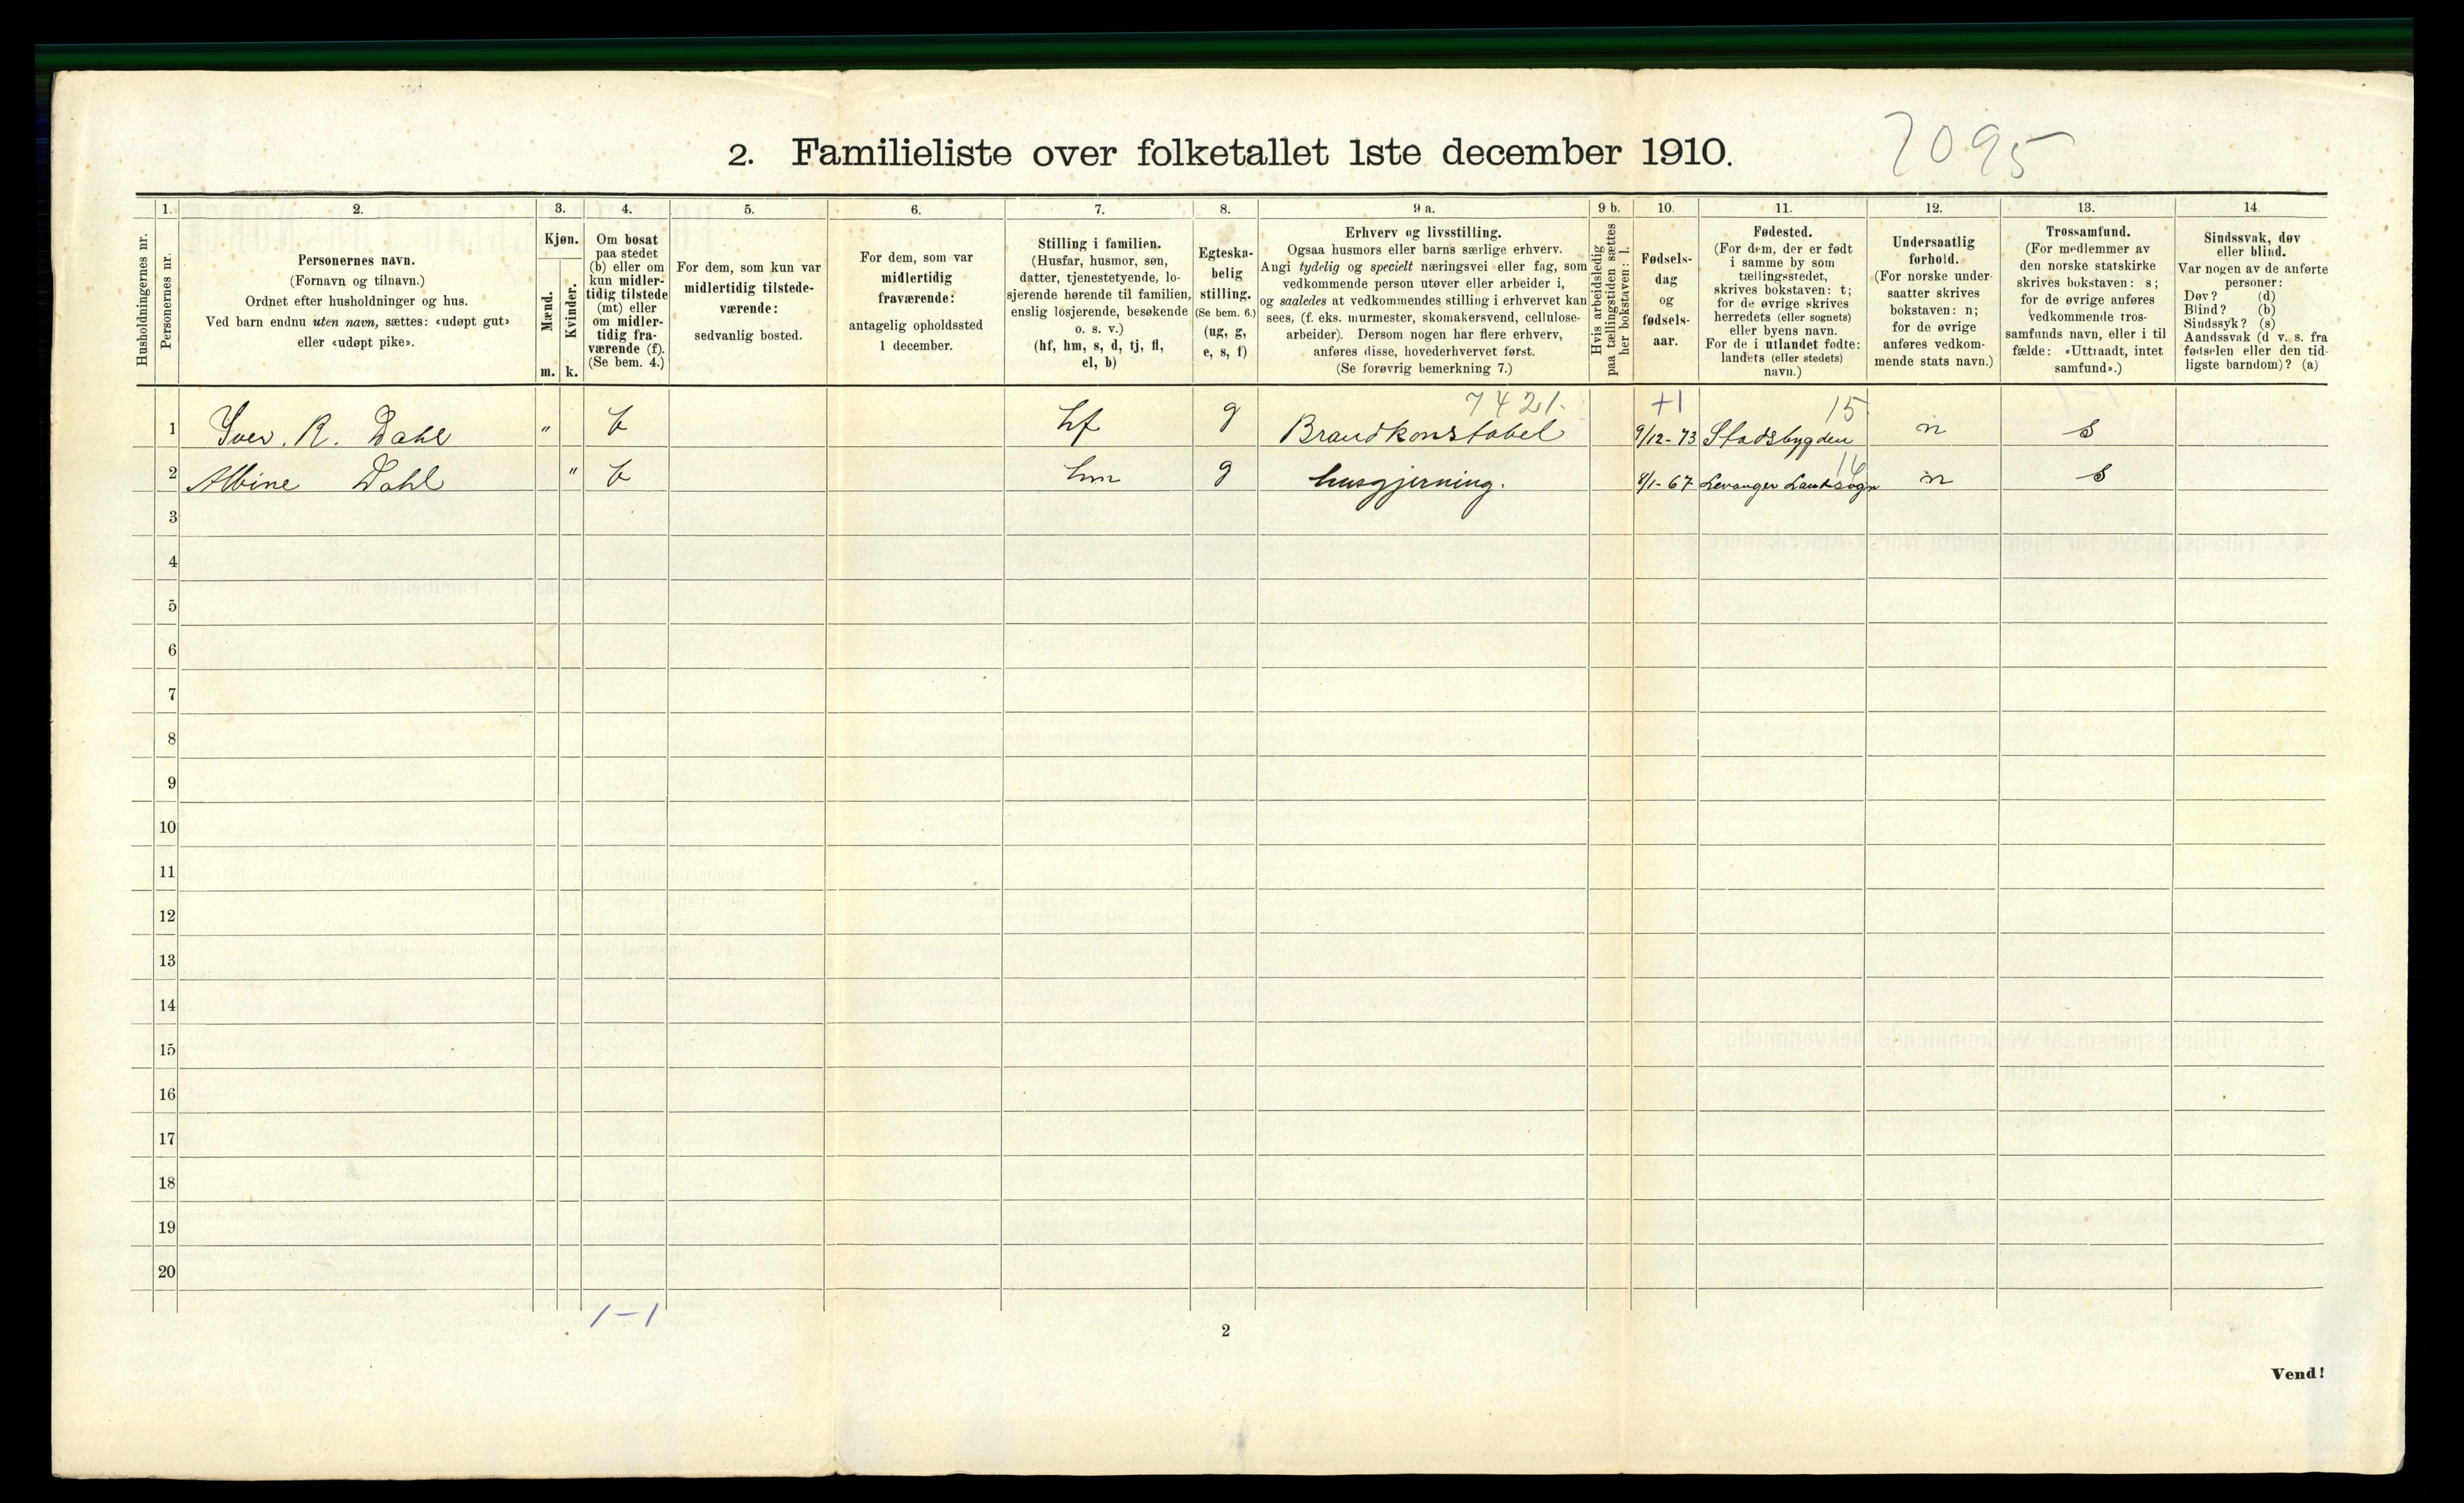 2. Familieliste over folketallet 1ste december 1910.
7095
Husholdningernes nr.
1.
Personernes nr.
2.
Personernes navn.
(Fornavn og tilnavn.)
Ordnet efter husholdninger og hus.
Ved barn endnu uten navn, sættes: «udøpt gut»
eller «udøpt pike».
3.
Kjøn.
Mænd.
Kvinder.
m. k.
4.
Om bosat
paa stedet
(b) eller om
kun midler-
tidig tilstede
(mt) eller
om midler-
tidig fra-
værende (f).
(Se bem. 4.)
5.
For dem, som kun var
midlertidig tilstede-
værende:
sedvanlig bosted.
6.
For dem, som var
midlertidig
fraværende:
antagelig opholdssted
1 december.
7.
Stilling i familien.
(Husfar, husmor, søn,
datter, tjenestetyende, lo-
sjerende hørende til familien,
enslig losjerende, besøkende
o. s. v.)
(hf, hm, s, d, tj, fl,
el, b)
8.
Egteska-
belig
stilling.
(Se bem. 6.)
(ug, g,
e, s, f)
9 a.
Erhverv og livsstilling.
Ogsaa husmors eller barns særlige erhverv.
Angi tydelig og specielt næringsvei eller fag, som
vedkommende person utøver eller arbeider i,
og saaledes at vedkommendes stilling i erhvervet kan
sees, (f. eks. murmester, skomakersvend, cellulose-
arbeider). Dersom nogen har flere erhverv,
anføres disse, hovederhvervet først.
(Se forøvrig bemerkning 7.)
9 b.
Hvis arbeidsledig
paa tællingstiden sættes
her bokstaven: l.
10.
Fødsels-
dag
og
fødsels-
aar.
11.
Fødested.
(For dem, der er født
i samme by som
tællingsstedet,
skrives bokstaven: t;
for de øvrige skrives
herredets (eller sognets)
eller byens navn.
For de i utlandet fødte:
landets (eller stedets)
navn.)
12.
Undersaatlig
forhold.
(For norske under-
saatter skrives
bokstaven: n;
for de øvrige
anføres vedkom-
mende stats navn.)
13.
Trossamfund.
(For medlemmer av
den norske statskirke
skrives bokstaven: s;
for de øvrige anføres
vedkommende tros-
samfunds navn, eller i til-
fælde: «Uttraadt, intet
samfund».)
14
Sindssvak, døv
eller blind.
Var nogen av de anførte
personer:
Døv? (d)
Blind? (b)
Sindssyk? (s)
Aandssvak (d v. s. fra
fødselen eller den tid-
ligste barndom)? (a)
7421. +1 15
1 Iver. R. Dahl " b hf g Brandkonstabel 9/12-73 Stadsbygden n s
16
2 Albine Dahl " b hm g husgjerning. 8/1-67 Levanger Landsogn n s
3
4
5
6
7
8
9
10
11
12
13
14
15
16
17
18
19
20
1-1
2
Vend!